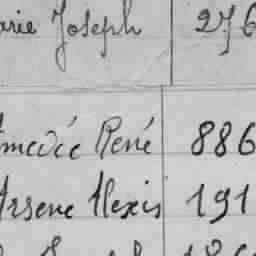 arie Joseph 276
Amédée René 886
Arsene Alexis 191